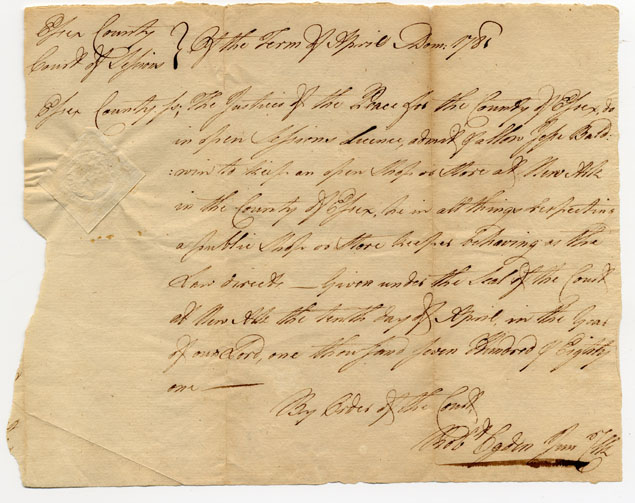 Essex County
Court of Sessions } Of the Term of April Dom: 1781
Essex County ss, The Justices of the Peace for the County of Essex, do
in open Sessions Licence, admit & allow Jesse Bald-
:win to keep an open Shop or Store at New Ark
in the County of Essex, he in all things respecting
a public Shop or Store keeper behaving as the
Law directs — Given under the Seal of the Court
at New Ark the tenth day of April, in the Year
of our Lord, one thousand seven Hundred & Eighty
one —
By Order of the Court
Ogden Junr Clk